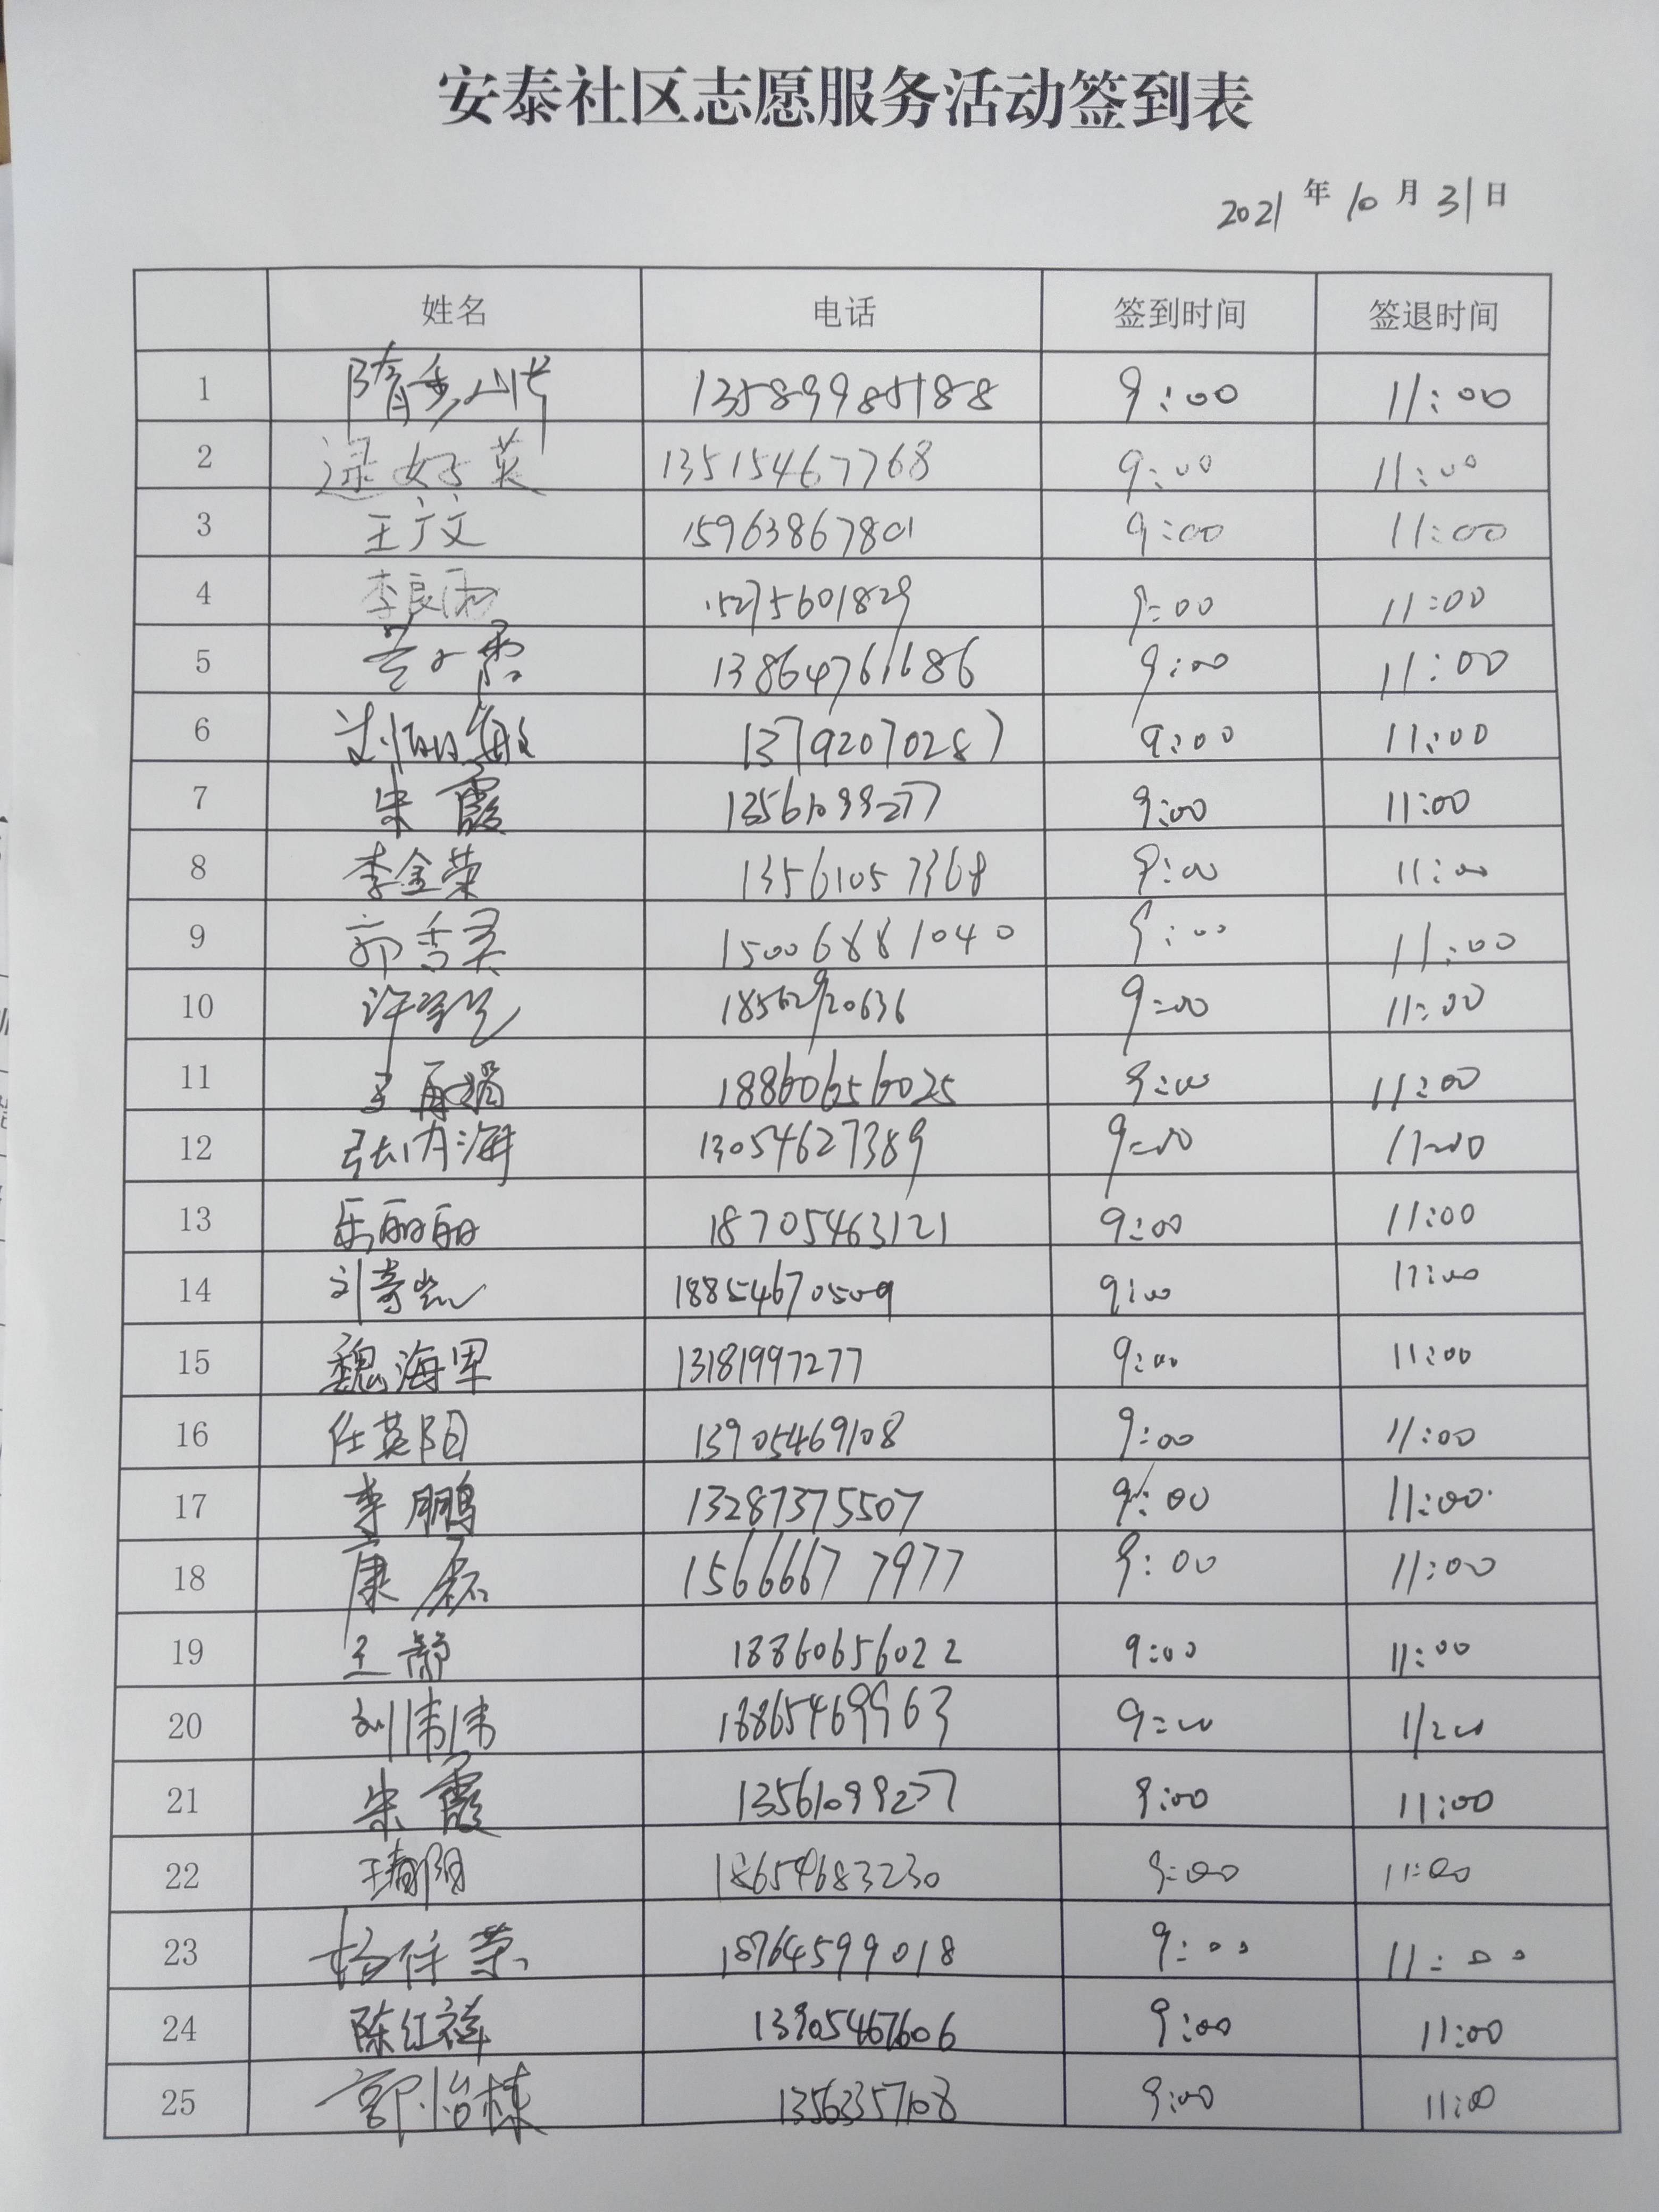 安泰社区志愿服务活动签到表
2021年10月31日
姓名 电话 签到时间 签退时间
1 13589985188 9:00 11:00
2 逯好英 13515467768 9:00 11:00
3 王广文 15963867801 9:00 11:00
4 李良雨 15275601829 9:00 11:00
5 13864761686 9:00 11:00
6 刘丽敏 13792070287 9:00 11:00
7 朱霞 13561099277 9:00 11:00
8 李金荣 13561057368 9:00 11:00
9 郭香灵 15006881040 9:00 11:00
10 18562920636 9:00 11:00
11 18860656025 9:00 11:00
12 张内海 13054627389 9:00 11:00
13 乐丽丽 18705463121 9:00 11:00
14 刘奇凯 18854670509 9:00 11:00
15 魏海军 13181997277 9:00 11:00
16 任英阳 13905469108 9:00 11:00
17 李鹏 13287375507 9:00 11:00
18 康磊 15666677977 9:00 11:00
19 王静 18860656022 9:00 11:00
20 刘伟伟 18865469963 9:00 11:00
21 朱霞 13561099277 9:00 11:00
22 18654683230 9:00 11:00
23 杨作荣 18764599018 9:00 11:00
24 陈红祥 13905467606 9:00 11:00
25 郭怡栋 13563357108 9:00 11:00